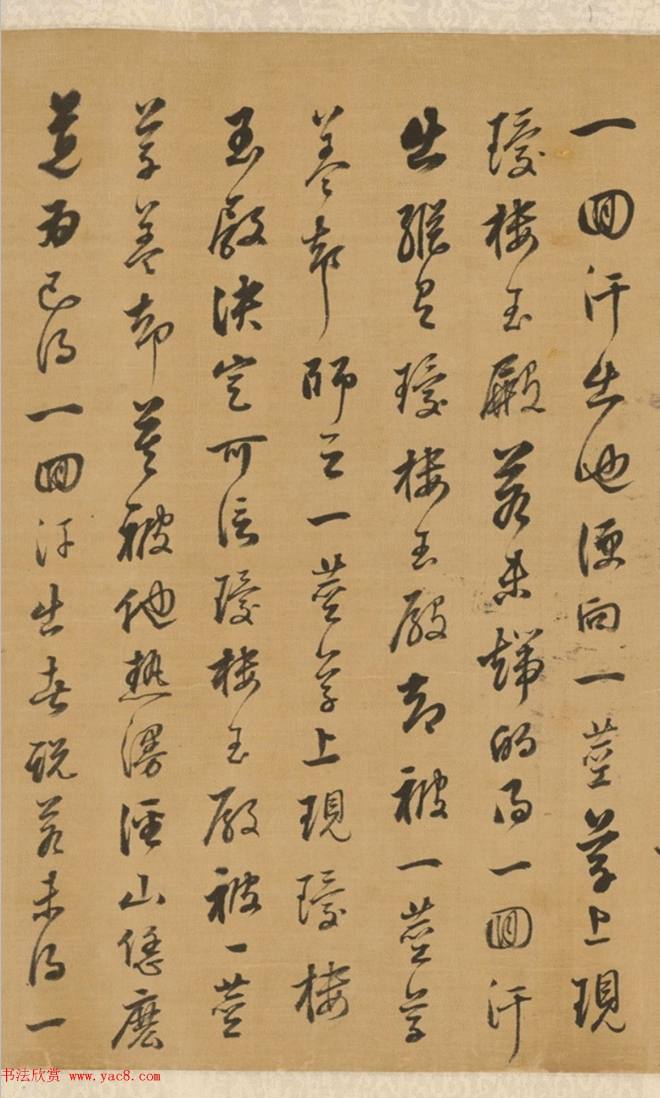 一回汗出也便向一莖草上現
瓊樓玉殿若未端的得一回汗
出縱有瓊樓玉殿却被一莖草
蓋却師云一莖草上現瓊樓
玉殿決定可信瓊樓玉殿被一莖
草蓋却莫被他熱謾徑山恁麼
道為已得一回汗出者說若未得一
书法欣赏 www.yac8.com